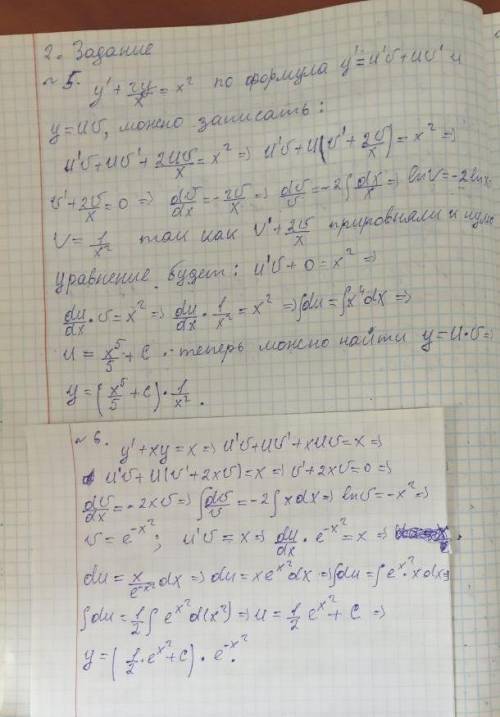 2. Задание
~ 5. y' + 2y/x = x² по формула y' = u'v + uv' и
y = uv, можно записать:
u'v + uv' + 2uv/x = x² => u'v + u(v' + 2v/x) = x² =>
v' + 2v/x = 0 => dv/dx = -2v/x => dv/v = -2∫dx/x => ln v = -2 ln x
v = 1/x² так как v' + 2v/x прировняли к нулю
уравнение будет: u'v + 0 = x² =>
du/dx · v = x² => du/dx · 1/x² = x² => ∫du = ∫x⁴dx =>
u = x⁵/5 + c · теперь можно найти y = u·v =>
y = (x⁵/5 + c) · 1/x².
~ 6. y' + xy = x => u'v + uv' + xuv = x =>
u'v + u(v' + 2xv) = x => v' + 2xv = 0 =>
dv/dx = -2xv => ∫dv/v = -2∫xdx => ln v = -x² =>
v = e^-x²; u'v = x => du/dx · e^-x² = x =>
du = x/e^-x² dx => du = xe^x² dx => ∫du = ∫e^x² · x dx =>
∫du = 1/2 ∫e^x² d(x²) => u = 1/2 e^x² + c =>
y = (1/2 · e^x² + c) · e^-x².